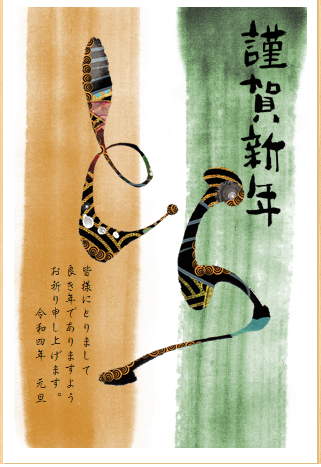 謹賀新年
とら
皆様にとりまして
良き年でありますよう
お祈り申し上げます。
令和四年　元旦